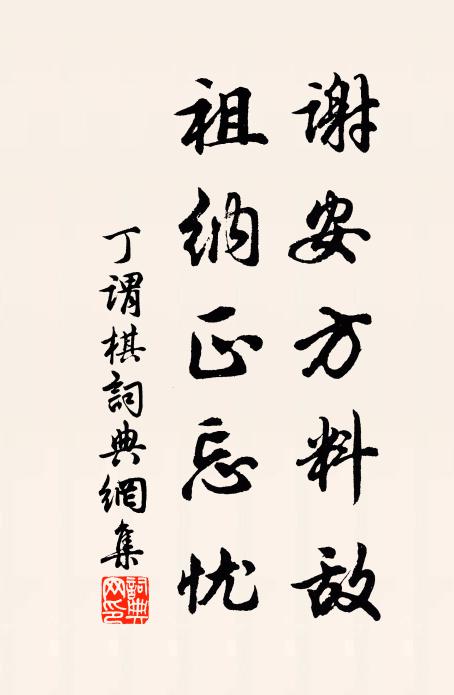 谢安方料敌
祖纳正忘忧
丁谓棋詞典網集
詞典网印